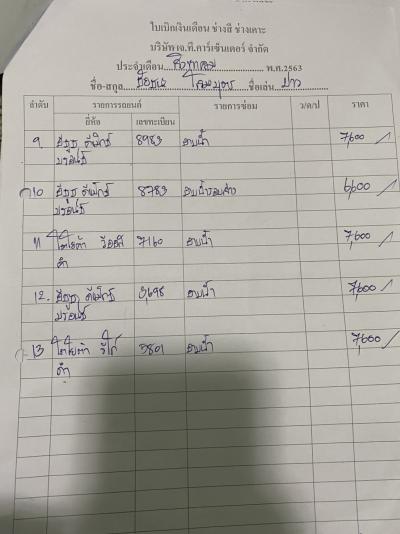 ใบเบิกเงินเดือน ช่างสี ช่างเคาะ
บริษัท เจ.ที.คาร์เซ็นเตอร์ จำกัด
ประจำเดือน สิงหาคม พ.ศ.2563
ชื่อ-สกุล ชื่อเล่น ขาว
ลำดับ รายการรถยนต์ รายการซ่อม ว/ด/ป ราคา
ยี่ห้อ เลขทะเบียน
9. อีซูซุ ดีแม็กซ์ 8983 อาบน้ำ 7,600
บรอนซ์
10 อีซูซุ ดีแม็กซ์ 8783 6,600
บรอนซ์
11 โตโยต้า วีออส 7160 อาบน้ำ 7,600
ดำ
12. อีซูซุ ดีแม็กซ์ อาบน้ำ 7,600
บรอนซ์
13 โตโยต้า วีโก้ อาบน้ำ 7,600
ดำ